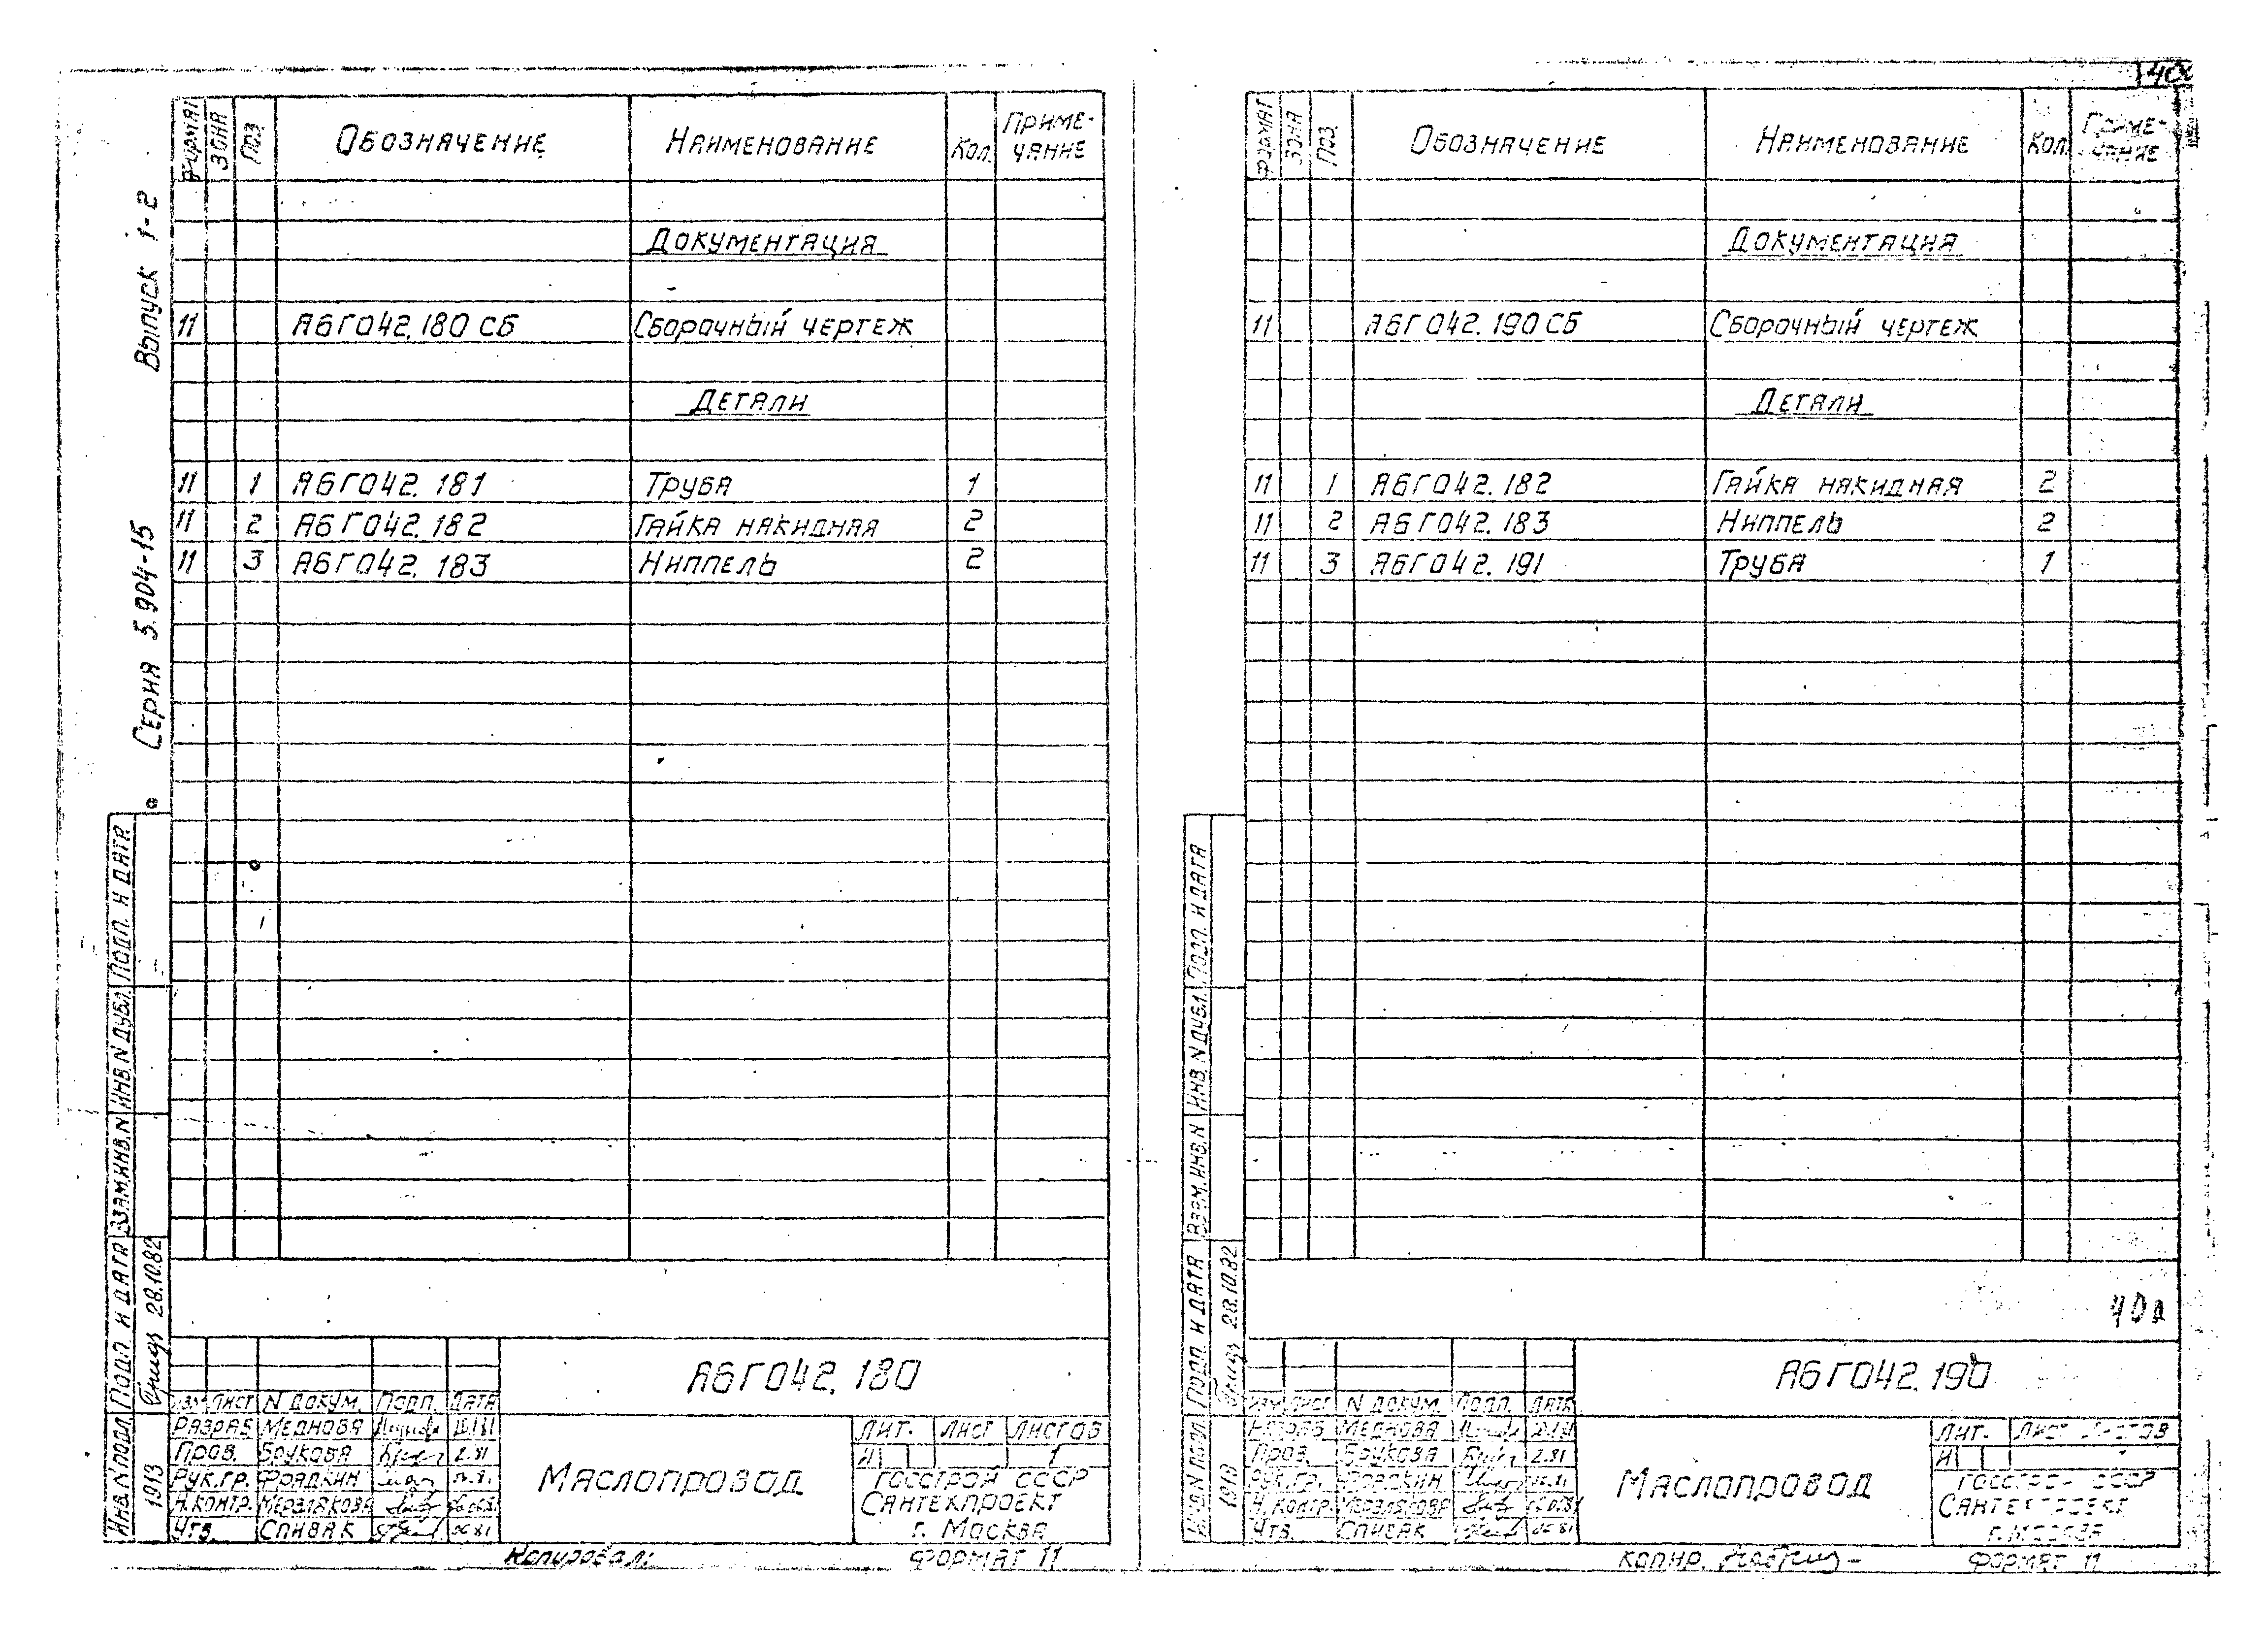 40а
Выпуск 1-2
Серия 5.904-15
Формат Зона Поз Обозначение Наименование Кол. Приме-чание
Документация
11 А6Г042.180 СБ Сборочный чертеж
Детали
11 1 А6Г042.181 Труба 1
11 2 А6Г042.182 Гайка накидная 2
11 3 А6Г042.183 Ниппель 2
Подп. и дата
Инв. N дубл.
Взам. инв. N
Подп. и дата 28.10.82
Инв. N подл. 1913
А6Г042.180
Изм Лист N докум. Подп. Дата
Разраб Меднова
Пров. Брукова 2.81
Рук.гр. Фрадкин
Н.контр. Мерзлякова
Утв. Спивак 06.81
Маслопровод
Лит. Лист Листов
И 1
Госстрой СССР
Сантехпроект
г. Москва
Копировал:
Формат 11
Формат Зона Поз. Обозначение Наименование Кол. Приме-чание
Документация
11 А6Г042.190 СБ Сборочный чертеж
Детали
11 1 А6Г042.182 Гайка накидная 2
11 2 А6Г042.183 Ниппель 2
11 3 А6Г042.191 Труба 1
Подп. и дата
Инв. N дубл.
Взам. инв. N
Подп. и дата 28.10.82
Инв. N подл. 1913
40а
А6Г042.190
Изм Лист N докум. Подп. Дата
Разраб Меднова
Пров. Брукова 2.81
Рук.гр. Фрадкин
Н.контр. Мерзлякова
Утв. Спивак 06.81
Маслопровод
Лит. Лист Листов
И 1
Госстрой СССР
Сантехпроект
г. Москва
Копир.
Формат 11